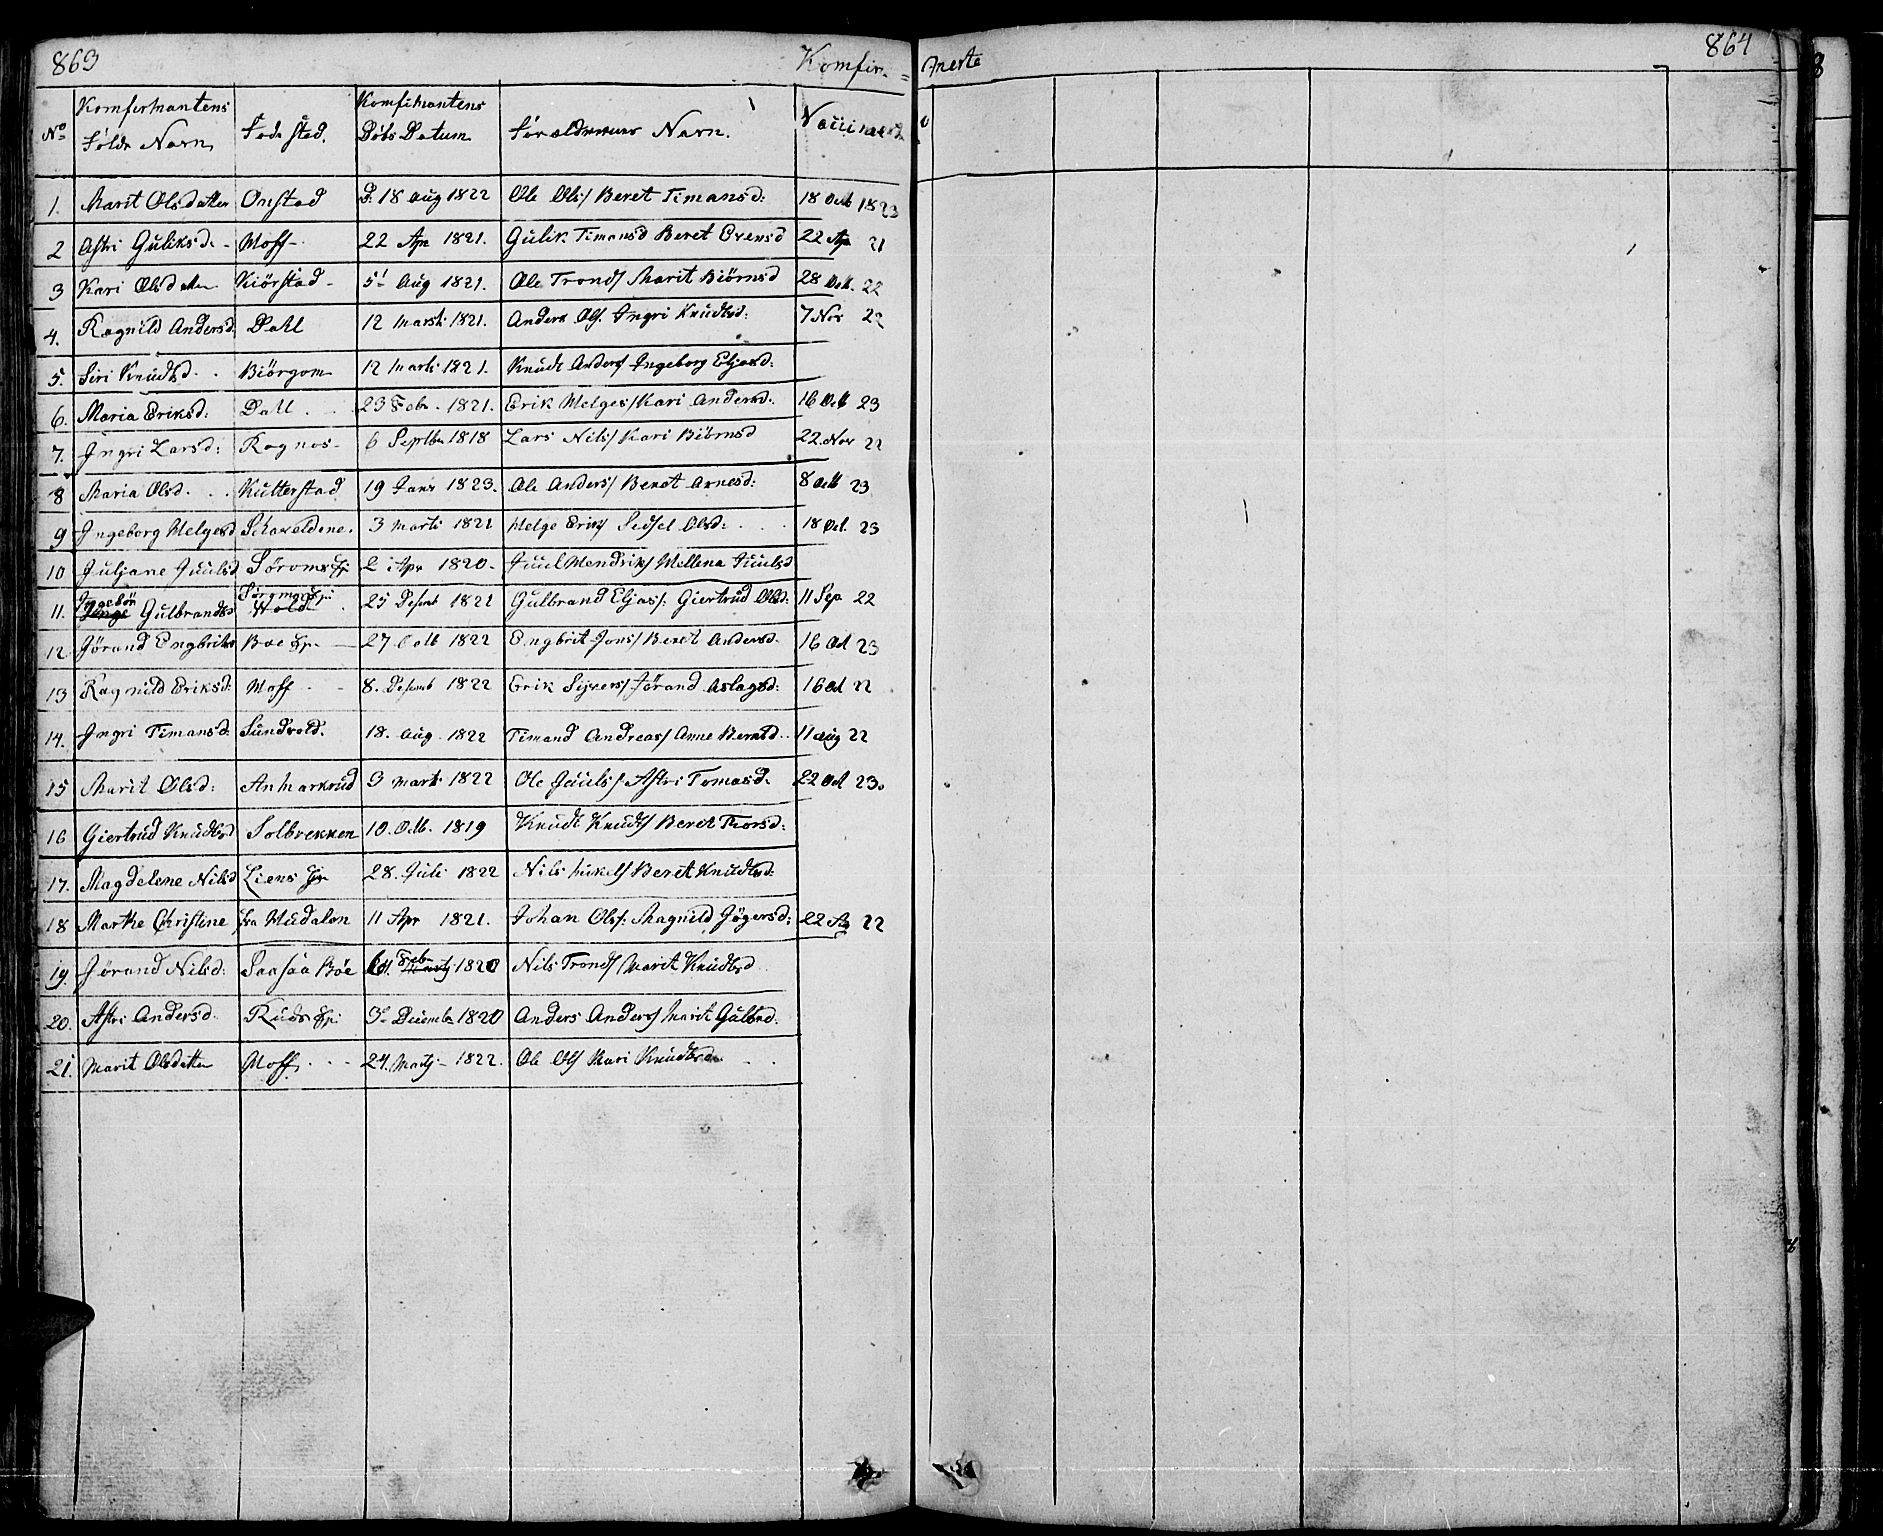 863 Komfir- = merte 864
No Komfirmantens Fulde Navn Føde Sted. Komfirmantens Døbs Datum Forældrenes Navn. Vaccineret
1. Marit Olsdatter Onstad D. 18 Aug 1822 Ole Ols/ Beret Timansd: 18 Oct 1823
2 Astri Guliksd. - Moff - 22 Apr 1821. Gulik Timansd Beret Evensd 22 Ap 21
3 Kari Olsdatter Kiørstad - 5t Aug 1821. Ole Trond/ Marit Biørnsd 28 Oct. 22
4. Ragnild Andersd. Dall 12 Marti 1821. Anders Ols. Ingri Knudtsd: 7 Nov 22
5. Siri Knudtsd. . Biørgom 12 Marti 1821. Knudt Anders/ Ingeborg Eljasd:
6. Maria Eriksd: Dall . . 23 Febr. 1821. Erik Helges/ Kari Andersd: 16 Oct 23
7. Ingri Larsd: Rognos - 6 Septbr 1818 Lars Nils/ Kari Biørnsd 22. Nov 22
8 Maria Olsd. . . Kutterstad 19 Janr 1823. Ole Anders/ Beret Arnesd: 8 Oct 23
9 Ingeborg Helgesd Schareldene. 3 Marti 1822 Helge Erik/ Sidsel Olsd: . . . 18 Oct. 23
10 Juljane Juulsd Søroms Ejr 2 Apr 1820. Juul Hendriks/ Hellena Juulsd
11. Ingebør Gulbrandsd 25 Desemb 1821 Gulbrand Eljas/: Giertrud Olsd: 11 Sep. 22
12 Jørand Engbritsd Boe Ejr. 27 Octb 1822 Engbrit Jons/ Beret Andersd. 16 Oct 23
13 Ragnild Eriksd: Moff . - 8. Desemb 1822 Erik Sivers/ Jørand Aslagsd: 16 Oct 22
14. Ingri Timansd: Sundvold. 18. Aug. 1822 Timand Andreas/ Anne Berntsd . . 11 Aug 22
15 Marit Olsd: Anmarkrud 3 Marti 1822 Ole Juuls/ Astri Tomasd. 22 Oct 23.
16 Giertrud Knudtsd Solbrekken 10. Octb. 1819 Knudt Knudts/ Beret Torsd:
17. Magdelene Nilsd Liens Ejr 28. Juli 1822 Nils Mikels/ Beret Knudtsd:
18 Marthe Christine fra Hedalen 11 Apr 1821. Johan Ols/: Magnild Jøgersd: 22 22
19. Jørand Nilsd: Saasaa Bøe Febr 1820 Nils Trond/ Marit Knudtsd . .
20. Astri Andersd. Ruds Ejr 3d Decembr 1820 Anders Anders/ Marit Gulbrd.
21. Marit Olsdatter Moff . . - 24. Martj - 1822. Ole Ols/ Kari Knudtsd . .